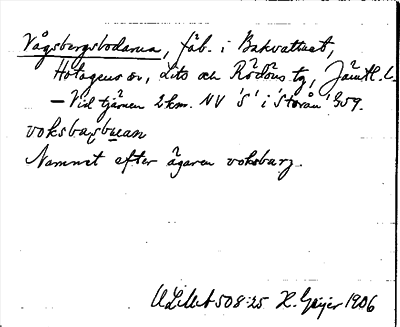 Vågsbergsbodarna, fäb. i Bakvattnet,
Hotagens sn, Lits och Rödöns tg, Jämtl. l.
– Vid tjärnen 2 km. NV 'S' i 'Storån' G59.
voksbaṣbu̲an
Namnet efter ägaren voksbarg.
ULMA 508:25 H. Geijer 1906